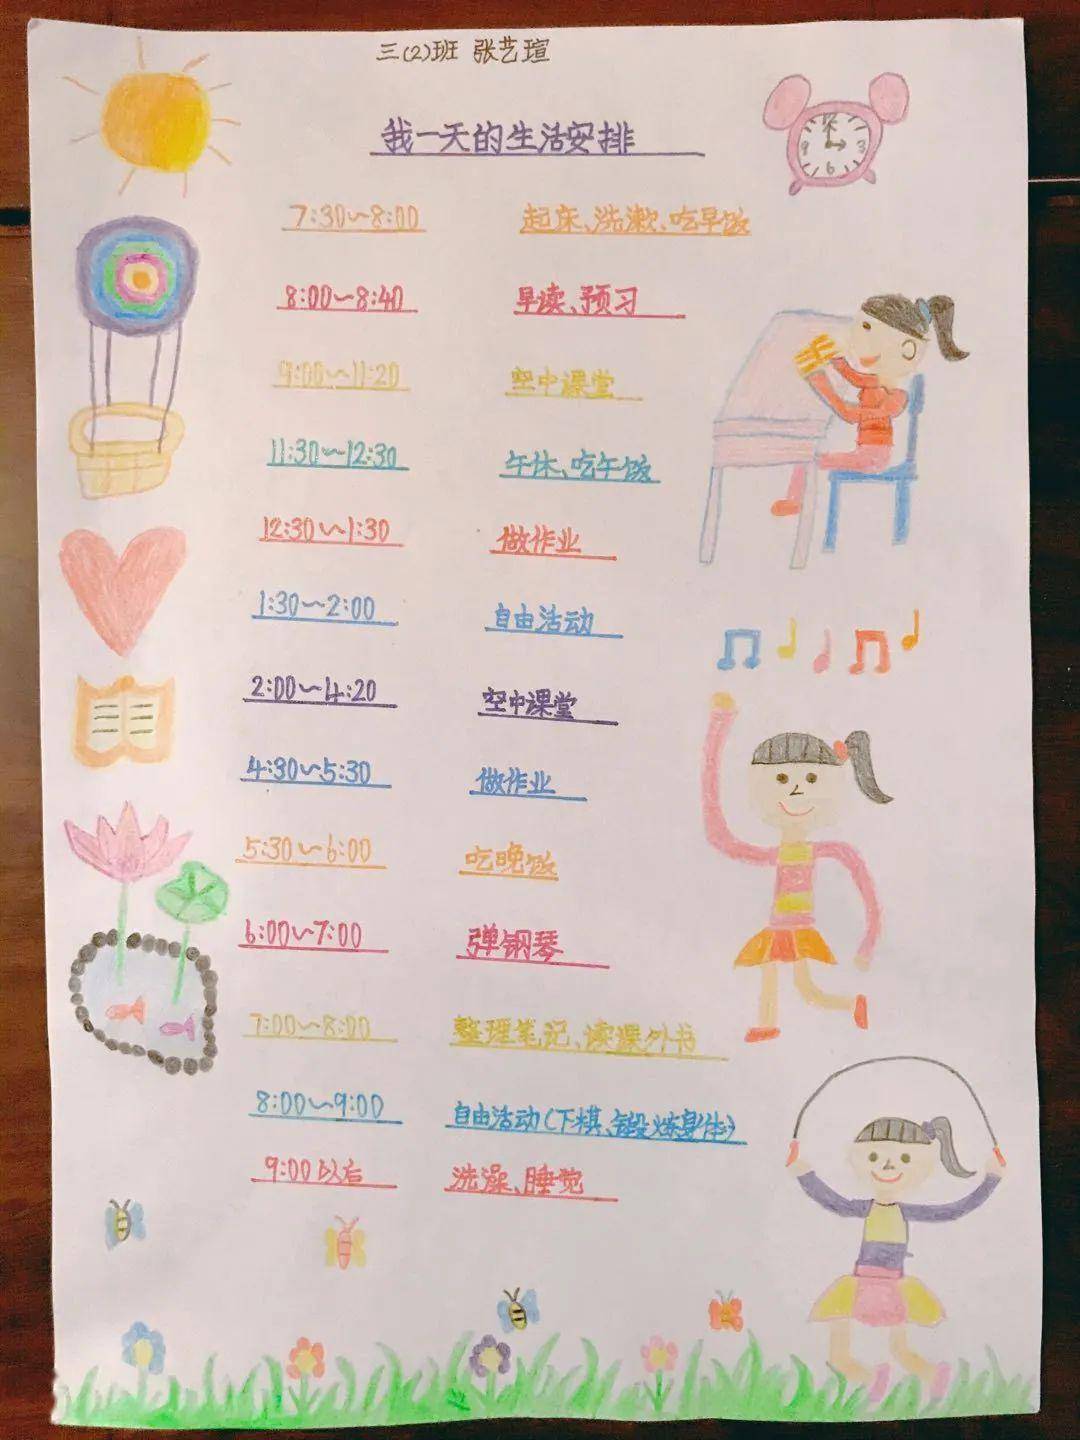 三(2)班 张艺瑄
我一天的生活安排
12
9 3
6
7:30~8:00 起床、洗漱、吃早饭
8:00~8:40 早读、预习
9:00~11:20 空中课堂
11:30~12:30 午休、吃午饭
12:30~1:30 做作业
1:30~2:00 自由活动
2:00~4:20 空中课堂
4:30~5:30 做作业
5:30~6:00 吃晚饭
6:00~7:00 弹钢琴
7:00~8:00 整理笔记、读课外书
8:00~9:00 自由活动(下棋、锻炼身体)
9:00以后 洗澡、睡觉